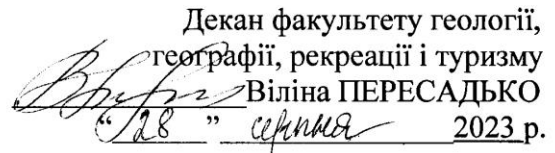 Декан факультету геології,
географії, рекреації і туризму
Віліна ПЕРЕСАДЬКО
“ 28 ” серпня 2023 р.